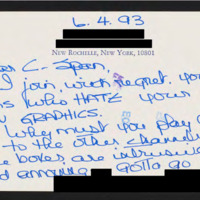 6.4.93
NEW ROCHELLE, NEW YORK, 10801
C-Span,
I join, with regret, you
s who HATE your
GRAPHICS.
Why must you play
to the other channels
e boxes, are intrusive
d annoying GOTTA GO